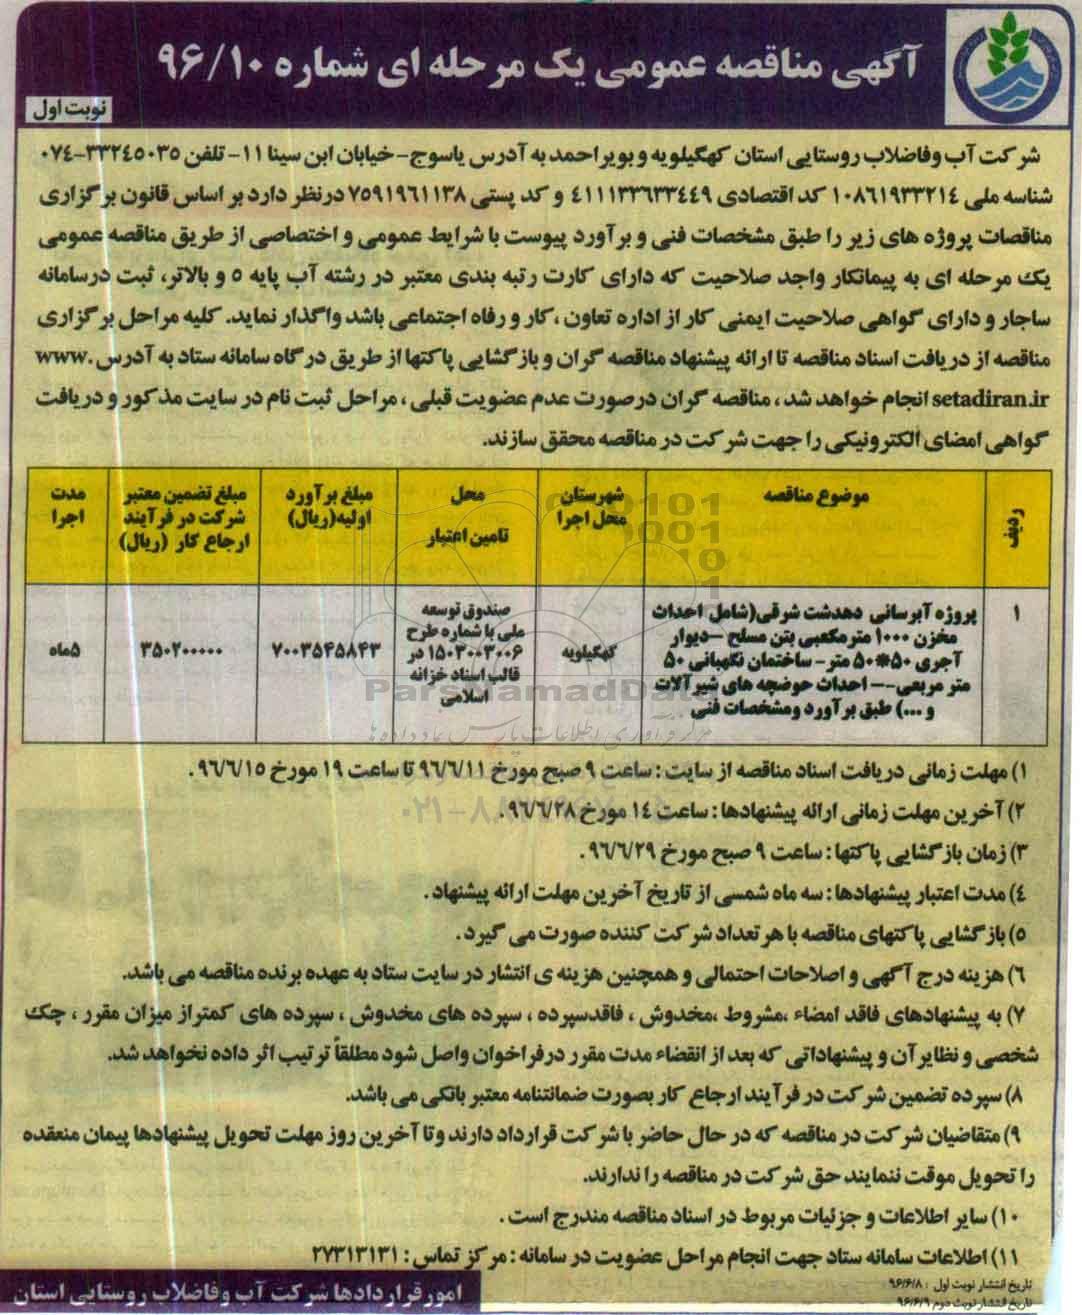 آگهی مناقصه عمومی یک مرحله ای شماره ۹۶/۱۰
نوبت اول
شرکت آب وفاضلاب روستایی استان کهگیلویه و بویراحمد به آدرس یاسوج- خیابان ابن سینا ۱۱- تلفن ۳۳۲۴۵۰۳۵-۰۷۴
شناسه ملی ۱۰۸۶۱۹۳۳۲۱۴ کد اقتصادی ۴۱۱۱۳۳۶۳۳۴۴۹ و کد پستی ۷۵۹۱۹۶۱۱۳۸ درنظر دارد بر اساس قانون برگزاری
مناقصات پروژه های زیر را طبق مشخصات فنی و برآورد پیوست با شرایط عمومی و اختصاصی از طریق مناقصه عمومی
یک مرحله ای به پیمانکار واجد صلاحیت که دارای کارت رتبه بندی معتبر در رشته آب پایه ۵ و بالاتر، ثبت درسامانه
ساجار و دارای گواهی صلاحیت ایمنی کار از اداره تعاون ،کار و رفاه اجتماعی باشد واگذار نماید. کلیه مراحل برگزاری
مناقصه از دریافت اسناد مناقصه تا ارائه پیشنهاد مناقصه گران و بازگشایی پاکتها از طریق درگاه سامانه ستاد به آدرس www.
setadiran.ir انجام خواهد شد ، مناقصه گران درصورت عدم عضویت قبلی ، مراحل ثبت نام در سایت مذکور و دریافت
گواهی امضای الکترونیکی را جهت شرکت در مناقصه محقق سازند.
ردیف
موضوع مناقصه
شهرستان
محل اجرا
محل
تامین اعتبار
مبلغ برآورد
اولیه(ریال)
مبلغ تضمین معتبر
شرکت در فرآیند
ارجاع کار (ریال)
مدت
اجرا
۱
پروژه آبرسانی دهدشت شرقی(شامل احداث
مخزن ۱۰۰۰ مترمکعبی بتن مسلح –دیوار
آجری ۵۰*۵۰ متر- ساختمان نگهبانی ۵۰
متر مربعی-– احداث حوضچه های شیرآلات
و ...) طبق برآورد ومشخصات فنی
کهگیلویه
صندوق توسعه
ملی با شماره طرح
۱۵۰۳۰۰۳۰۰۶ در
قالب اسناد خزانه
اسلامی
۷۰۰۳۵۴۵۸۴۳
۳۵۰۲۰۰۰۰۰
۵ماه
ParsNamadData
۱) مهلت زمانی دریافت اسناد مناقصه از سایت : ساعت ۹ صبح مورخ ۹۶/۶/۱۱ تا ساعت ۱۹ مورخ ۹۶/۶/۱۵ .
۲) آخرین مهلت زمانی ارائه پیشنهادها : ساعت ۱۴ مورخ ۹۶/۶/۲۸.
۳) زمان بازگشایی پاکتها : ساعت ۹ صبح مورخ ۹۶/۶/۲۹ .
۴) مدت اعتبار پیشنهادها : سه ماه شمسی از تاریخ آخرین مهلت ارائه پیشنهاد .
۵) بازگشایی پاکتهای مناقصه با هر تعداد شرکت کننده صورت می گیرد .
۶) هزینه درج آگهی و اصلاحات احتمالی و همچنین هزینه ی انتشار در سایت ستاد به عهده برنده مناقصه می باشد.
۷) به پیشنهادهای فاقد امضاء ،مشروط ،مخدوش ، فاقدسپرده ، سپرده های مخدوش ، سپرده های کمتراز میزان مقرر ، چک
شخصی و نظایرآن و پیشنهاداتی که بعد از انقضاء مدت مقرر درفراخوان واصل شود مطلقاً ترتیب اثر داده نخواهد شد.
۸) سپرده تضمین شرکت در فرآیند ارجاع کار بصورت ضمانتنامه معتبر بانکی می باشد.
۹) متقاضیان شرکت در مناقصه که در حال حاضر با شرکت قرارداد دارند وتا آخرین روز مهلت تحویل پیشنهادها پیمان منعقده
را تحویل موقت ننمایند حق شرکت در مناقصه را ندارند.
۱۰) سایر اطلاعات و جزئیات مربوط در اسناد مناقصه مندرج است .
۱۱) اطلاعات سامانه ستاد جهت انجام مراحل عضویت در سامانه : مرکز تماس : ۲۷۳۱۳۱۳۱
تاریخ انتشار نوبت اول : ۹۶/۶/۸
تاریخ انتشار نوبت دوم ۹۶/۶/۹
امور قراردادها شرکت آب وفاضلاب روستایی استان